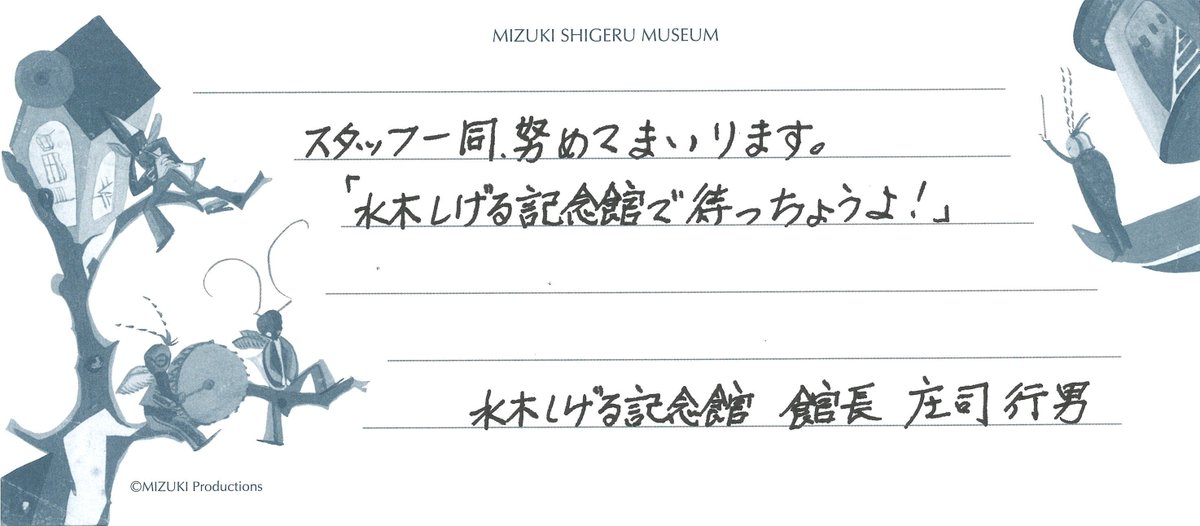 MIZUKI SHIGERU MUSEUM
スタッフ一同、努めてまいります。
「水木しげる記念館で待っちょうよ!」
水木しげる記念館 館長 庄司行男
©MIZUKI Productions